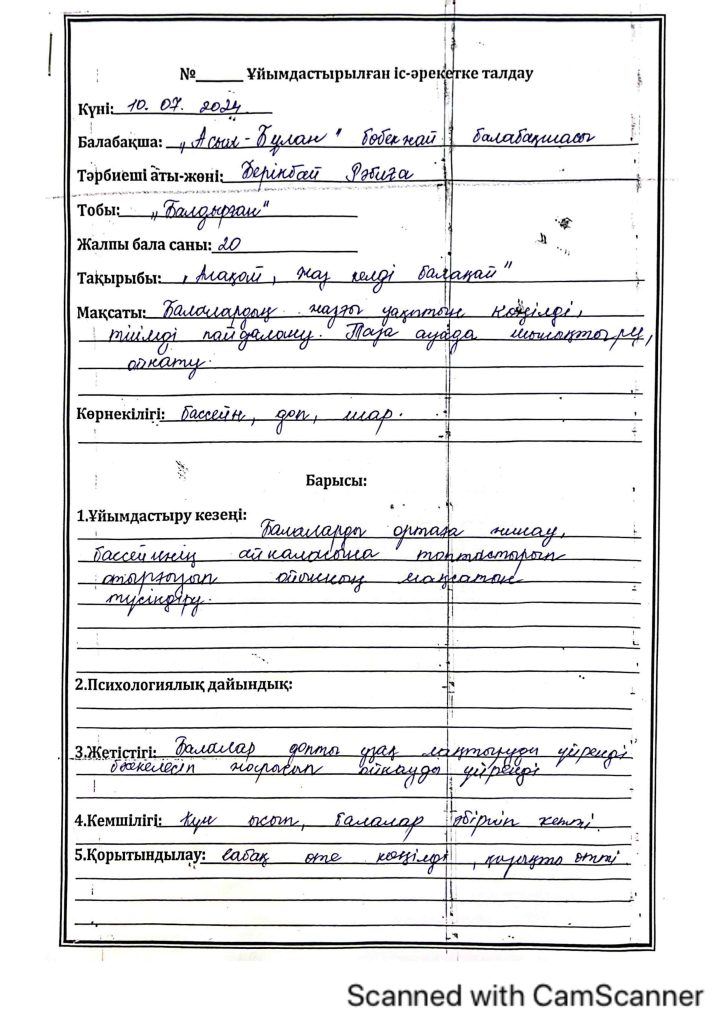 №______ Ұйымдастырылған іс-әрекетке талдау
Күні: 10. 07. 2024
Балабақша: „Асыл-Бұлан" бөбекжай балабақшасы
Тәрбиеші аты-жөні: Берікбай Рәбиға
Тобы: „Балдырған"
Жалпы бала саны: 20
Тақырыбы: „Алақай, жаз келді балақай"
Мақсаты: Балалардың жазғы уақытын көңілді,
тиімді пайдалану. Таза ауада шынықтыру,
ойнату.
Көрнекілігі: бассейн, доп, шар.
Барысы:
1.Ұйымдастыру кезеңі:
Балаларды ортаға жинау,
бассейннің айналасына топтастырып
отырғызып ойынның мақсатын
түсіндіру.
2.Психологиялық дайындық:
3.Жетістігі: Балалар допты ұзақ лақтыруды үйренді
бәсекелесіп жарысып ойнауды үйренді
4.Кемшілігі: Күн ысып, балалар әбігіп кетті.
5.Қорытындылау: сабақ өте көңілді, қызықты өтті
Scanned with CamScanner